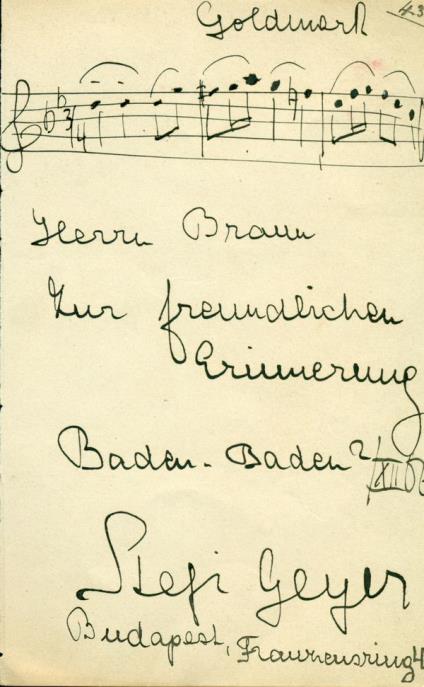 Goldmark
43
3/4
Herrn Braun
Zur freundlichen
Erinnerung
Baden-Baden 2/XII 06
Stefi Geyer
Budapest, Franzensring 4